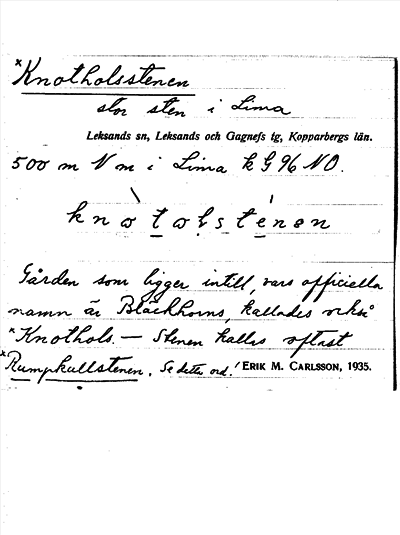 *Knotholsstenen
stor sten i Lima
Leksands sn, Leksands och Gagnefs tg, Kopparbergs län.
500 m N m i Lima k G 96 NO.
knωtωlstenen
Gården som ligger intill, vars officiella
namn är Bläckhorns, kallades också
*Knothols. — Stenen kallas oftast
*Rumpkullstenen. Se detta ord! ERIK M. CARLSSON, 1935.